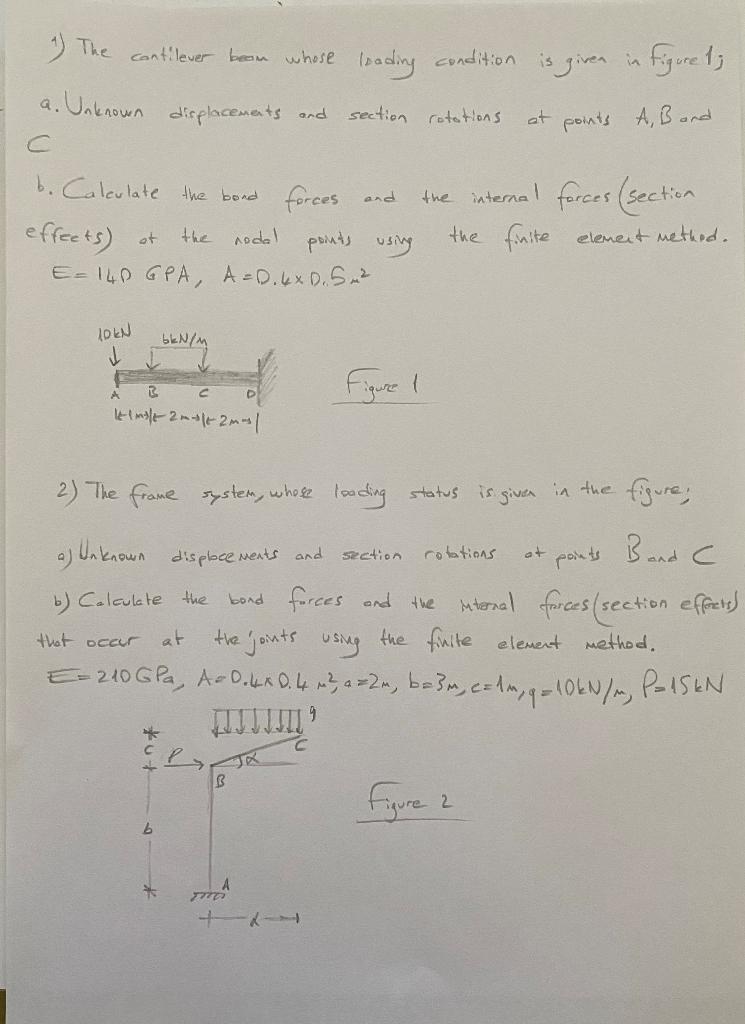 1) The cantilever beam whose loading condition is given in figure 1;
a. Unknown displacements and section rotations at points A, B and
C
b. Calculate the bond forces and the internal forces (section
effects) at the nodal points using the finite element method.
E = 140 GPA, A = 0.4x0.5 m²
10kN
6kN/m
A B C D
1m 2m 2m
Figure 1
2) The frame system, whose loading status is given in the figure;
a) Unknown displacements and section rotations at points B and C
b) Calculate the bond forces and the internal forces (section effects)
that occur at the joints using the finite element method.
E = 210 GPa, A = 0.4x0.4 m², a=2m, b=3m, c=1m, q=10kN/m, P=15kN
q
c P α C
B
Figure 2
b
A
α